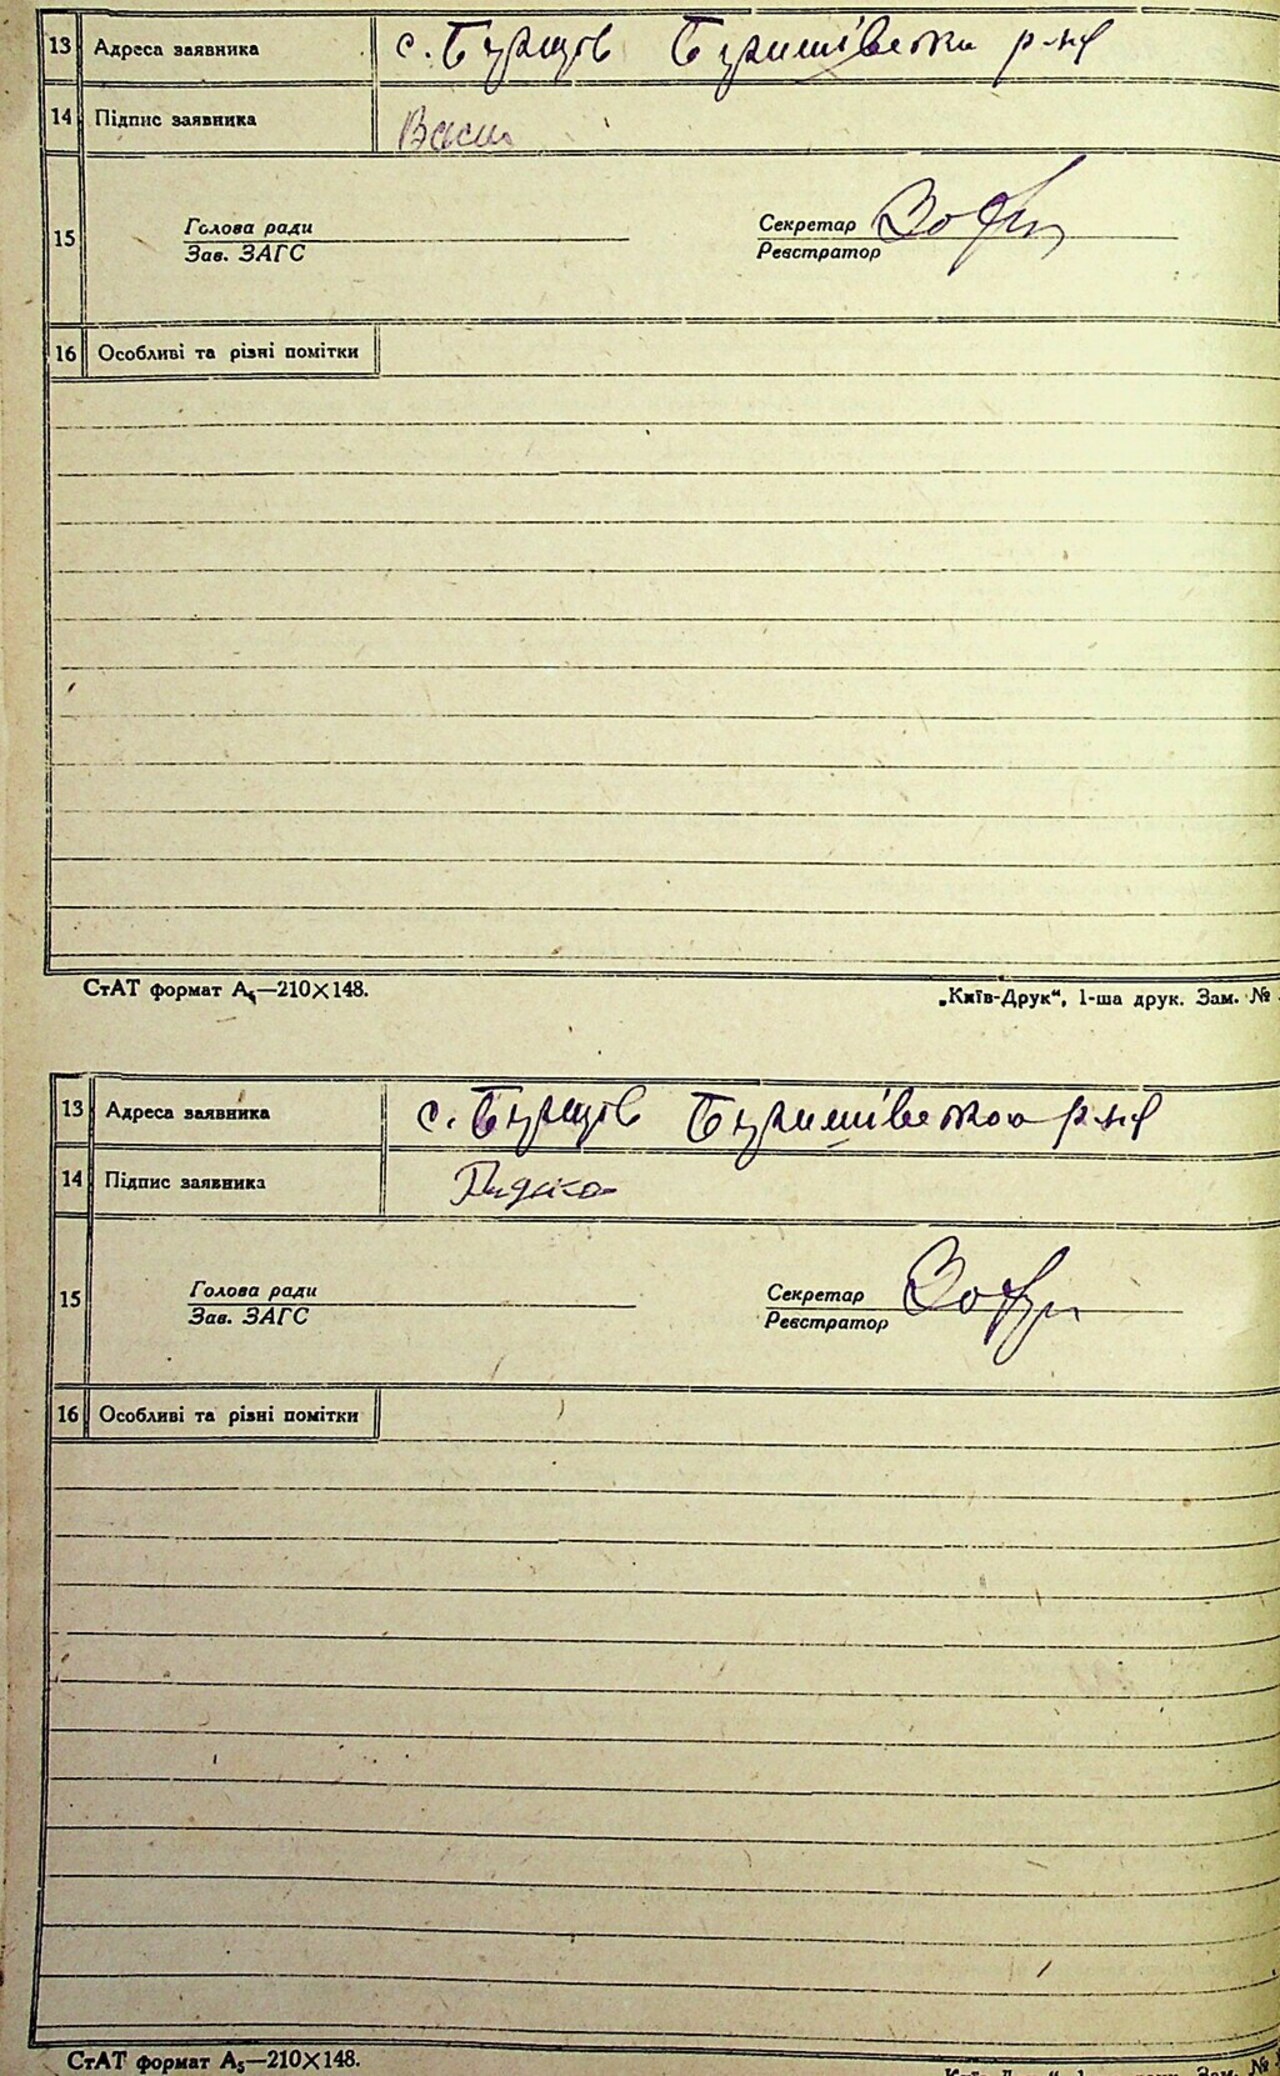 13 Адреса заявника с. Борщів Баришівського р-ну
14 Підпис заявника Васил
15 Голова ради Секретар
Зав. ЗАГС Реєстратор
16 Особливі та різні помітки
СтАТ формат А5—210×148. „Київ-Друк“, 1-ша друк. Зам. №
13 Адреса заявника с. Борщів Баришівського р-ну
14 Підпис заявника
15 Голова ради Секретар
Зав. ЗАГС Реєстратор
16 Особливі та різні помітки
СтАТ формат А5—210×148. Зам. №